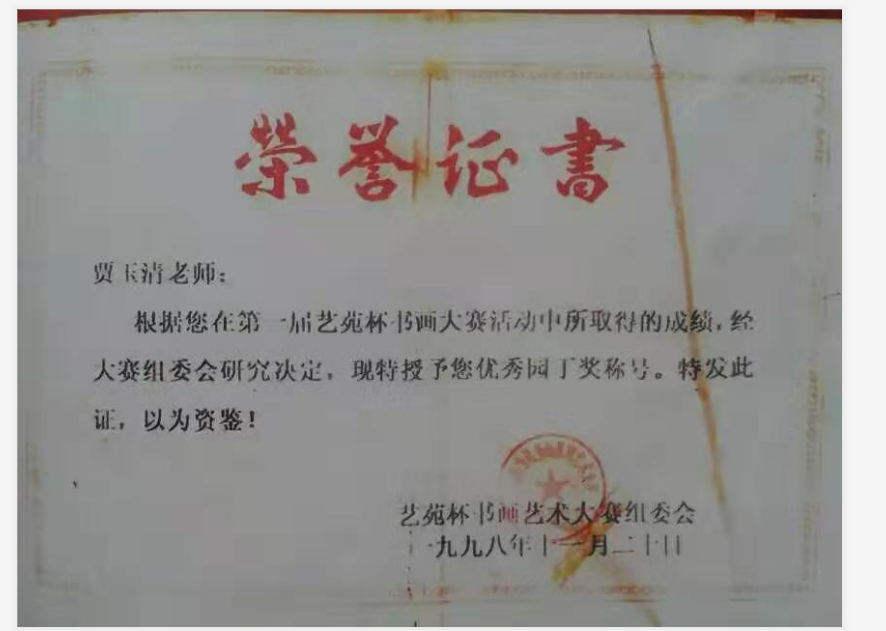 荣誉证书
贾玉清老师：
根据您在第一届艺苑杯书画大赛活动中所取得的成绩，经
大赛组委会研究决定，现特授予您优秀园丁奖称号。特发此
证，以为资鉴！
艺苑杯书画艺术大赛组委会
一九九八年十一月二十日